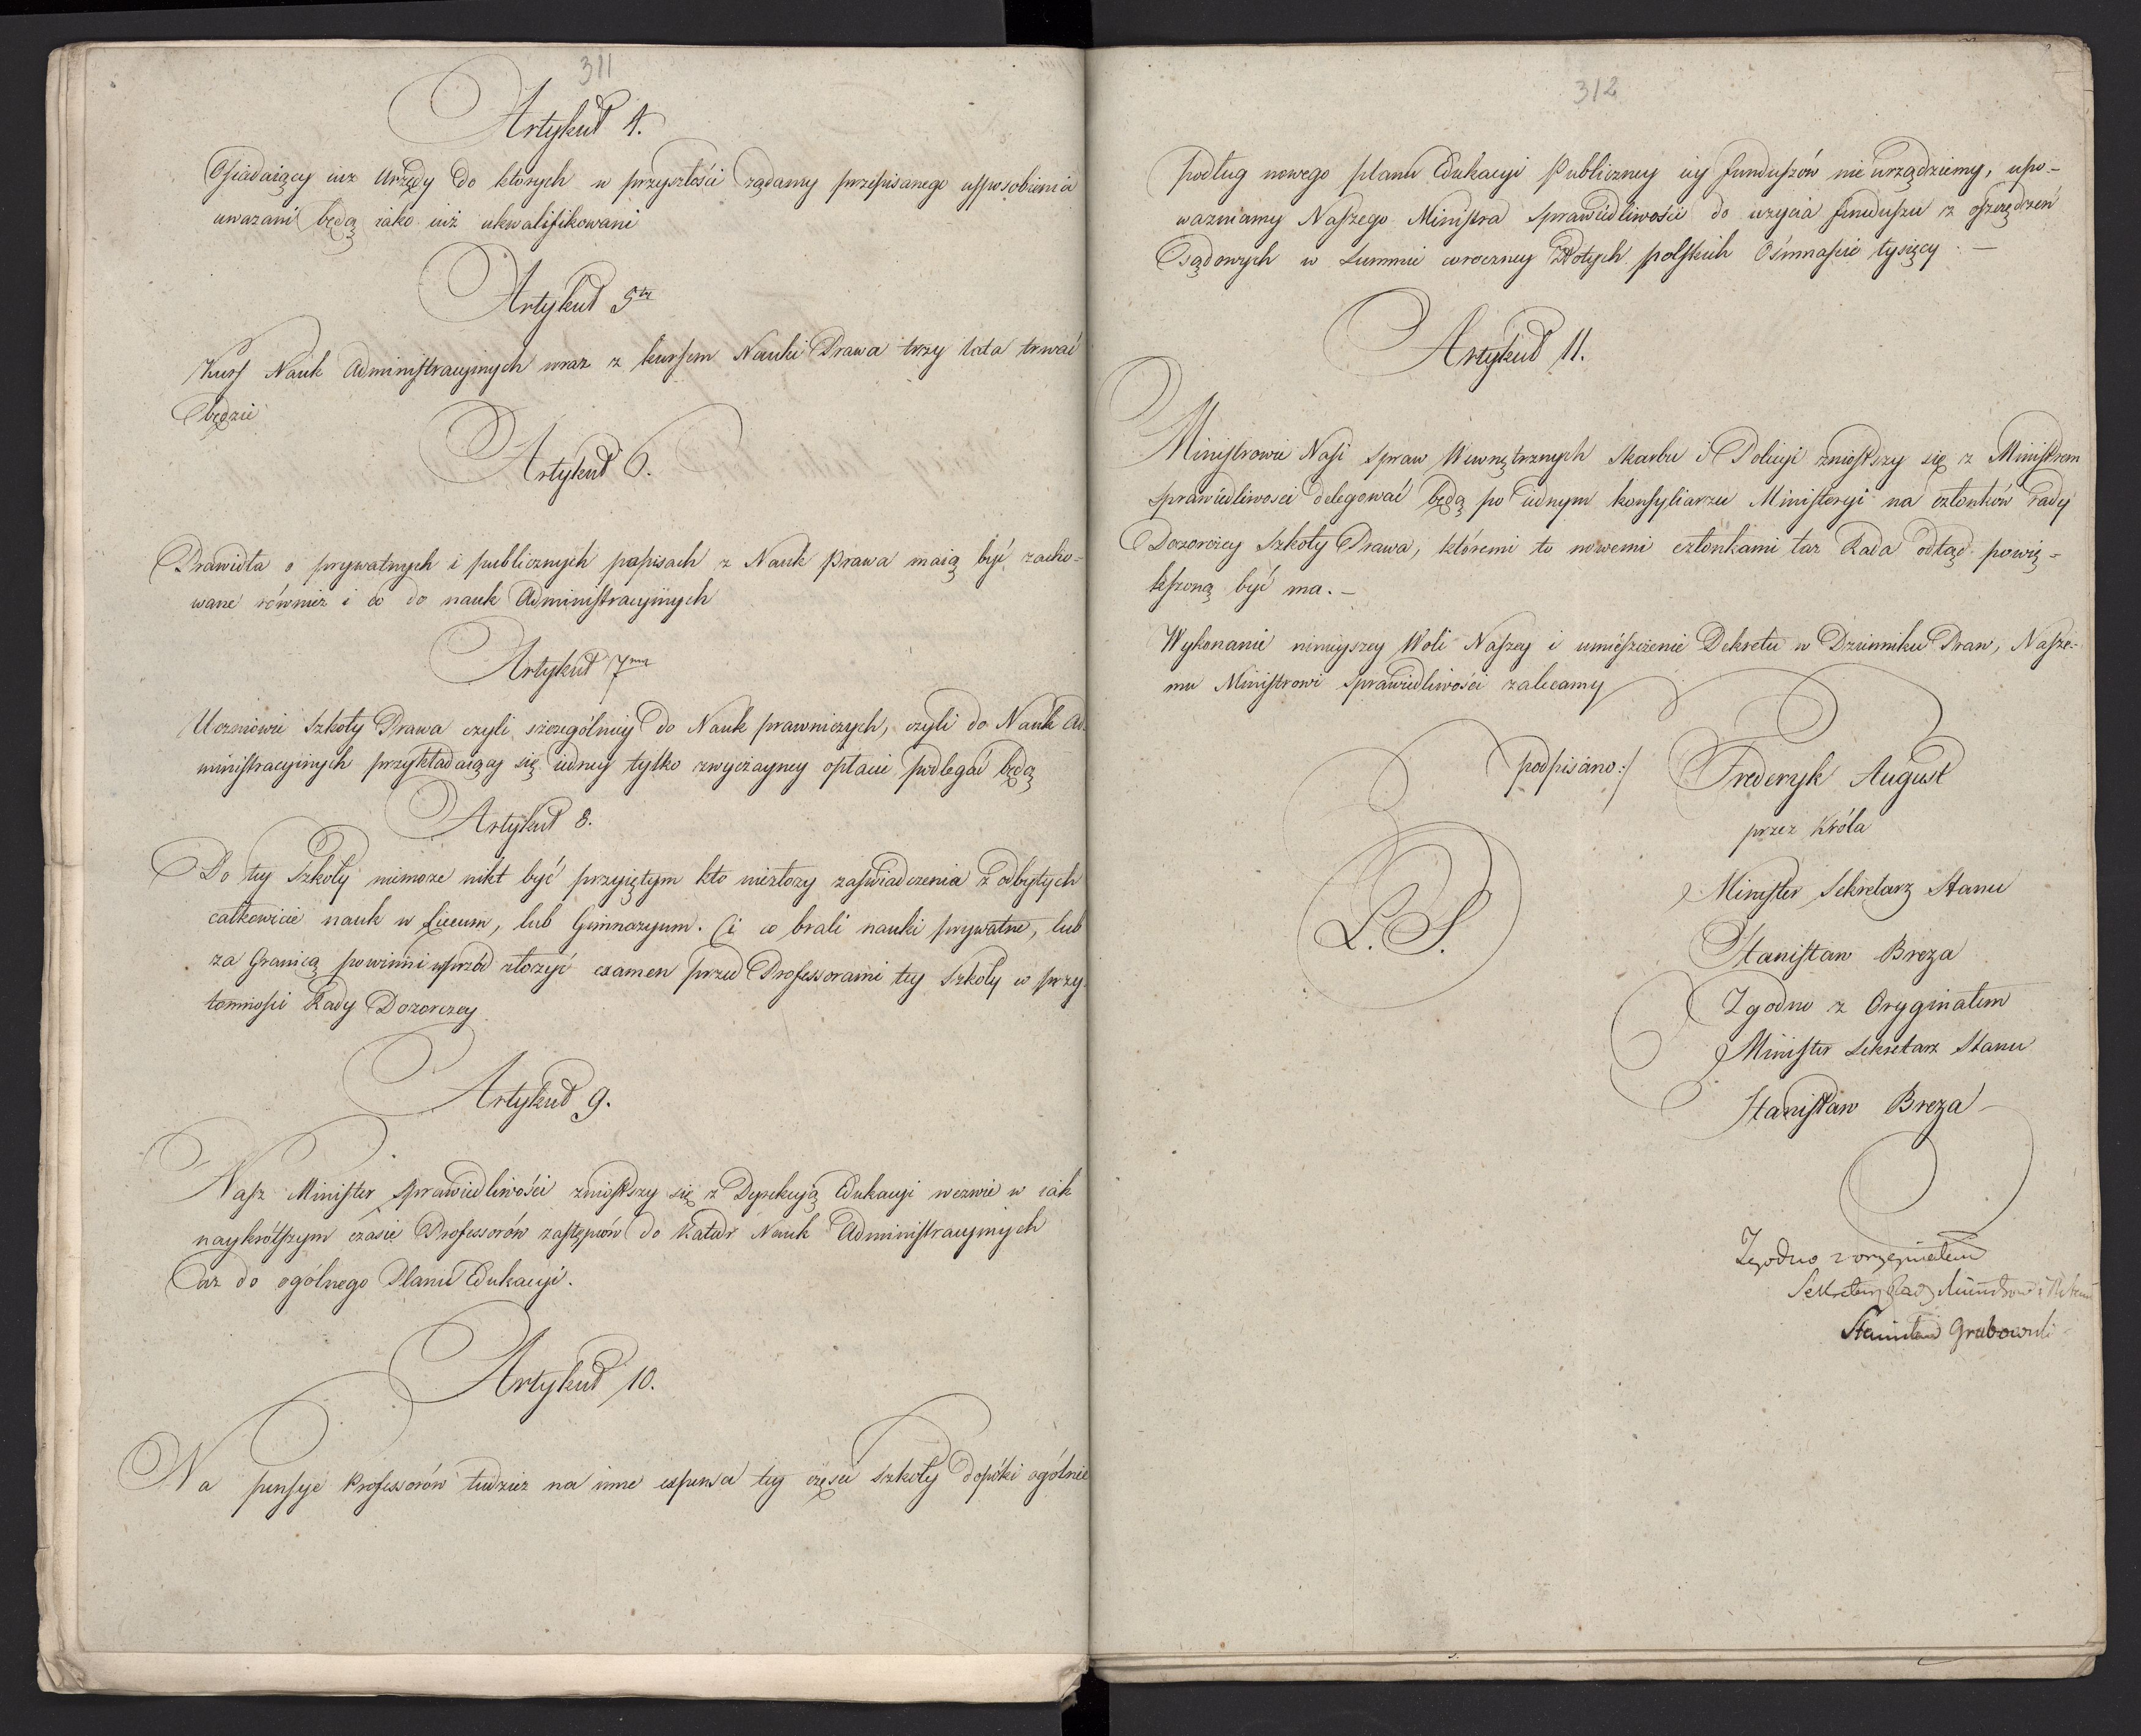 311
Artykuł 4.
Osiadaiący iuz Urzędy do ktorych w przyszłości ządamy przepisanego usposobienia
uwazani będą iako iuż ukwalifikowani
Artykuł 5ty
Kurs Nauk Administracyinych wraz z kursem Nauki Prawa trzy lata trwać
będzie
Artykuł 6.
Prawidła o prywatnych i publicznych papisach z Nauk Prawa maią być zacho-
wane równiez i co do nauk Administracyinych
Artykuł 7my
Uczniowie Szkoły Prawa czyli szczególniey do Nauk prawniczych, czyli do Nauk Ad-
ministracyinych przykładaiący się iedney tylko zwyczayney opłacie podlegać będą
Artykuł 8.
Do tey Szkoły niemoze nikt być przyiętym kto niezłozy zaswiadczenia z odbytych
całkowicie nauk w Liceum, lub Gimnazyum. Ci co brali nauki prywatne, lub
za Granicą powinni wprzód złożyć examen przed Professorami tey Szkoły w przy-
tomności Rady Dozorczey
Artykuł 9.
Nasz Minister Sprawiedliwości zniosłszy się z Dyrekcyią Edukacyi wezwie w iak
naykrótszym czasie Professorów zastępców do Katedr Nauk Administracyinych
az do ogólnego Planu Edukacyi.
Artykuł 10.
Na pensye Professorów tudziez na inne expensa tey części Szkoły dopóki ogólnie
312
podług nowego planu Edukacyi Publiczney iey funduszów nie urządziemy, upo-
wazniamy Naszego Ministra Sprawiedliwości do uzycia funduszu z oszczędzeń
Sądowych w Summie coroczney Złotych polskich Ośmnaście tysięcy. —
Artykuł 11.
Ministrowie Nasi Spraw Wewnętrznych Skarbu i Policyi zniosłszy się z Ministrem
Sprawiedliwosci delegować będą po iednym konsyliarzu Ministeryi na członków rady
Dozorczey Szkoły Prawa, któremi to nowemi członkami taz Rada odtąd powię-
kszoną być ma. —
Wykonanie ninieyszey Woli Naszey i umieszczenie Dekretu w Dzienniku Praw, Nasze-
mu Ministrowi Sprawiedliwości zalecamy
podpisano:/ Frederyk August
przez Króla
Minister Sekretarz Stanu
L. S.
Stanisław Breza
Zgodno z Oryginałem
Minister Sekretarz Stanu
Stanisław Breza
Zgodno z oryginałem
Sekretarz Rady Ministrow i Stanu
Stanisław Grabowski